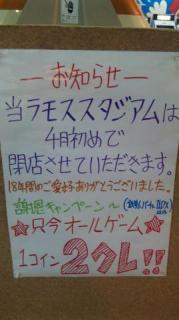 ーお知らせー
当ラモススタジアムは
4月初めで
閉店させていただきます。
18年間のご愛好ありがとうございました。
謝恩キャンペーン〜
★只今オールゲーム★
1コイン2クレ!!